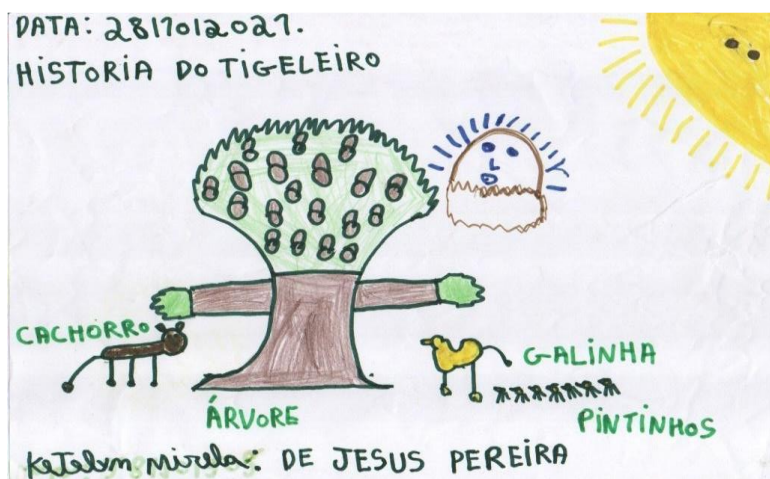 DATA: 28/10/2021.
HISTORIA DO TIGELEIRO
CACHORRO
GALINHA
ÁRVORE
PINTINHOS
Ketelym Mirela: DE JESUS PEREIRA